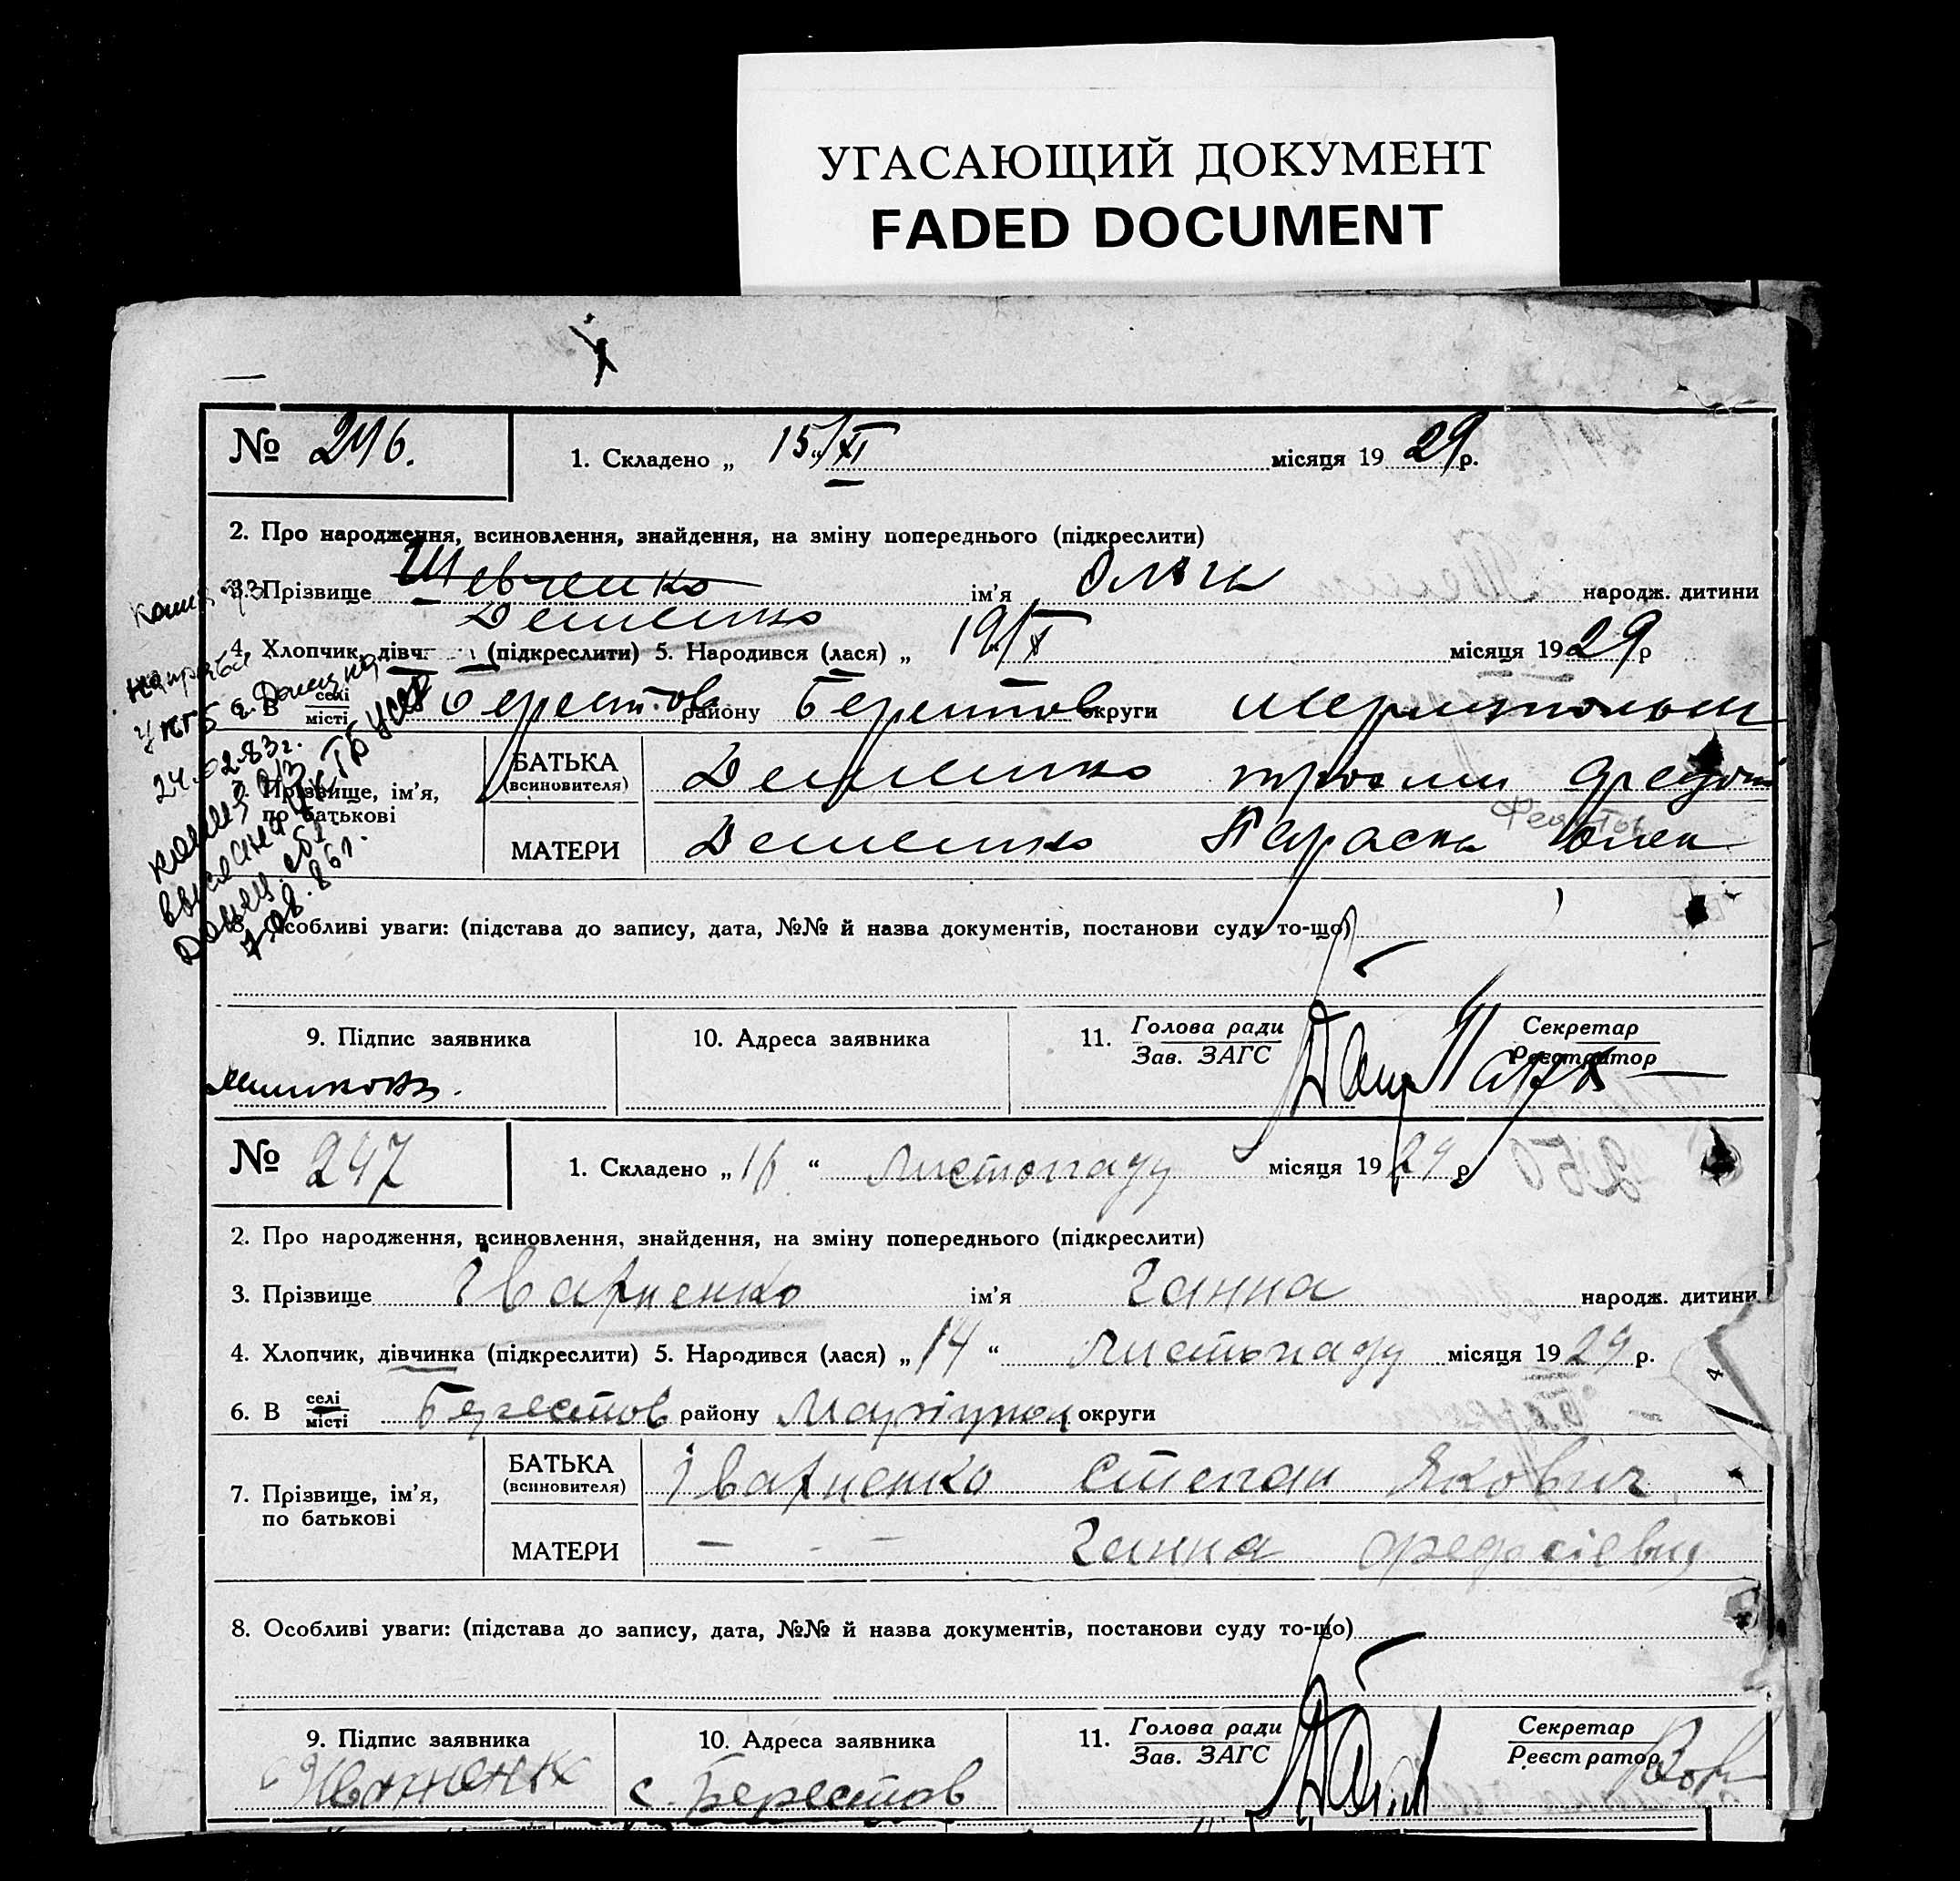 УГАСАЮЩИЙ ДОКУМЕНТ
FADED DOCUMENT
№ 246.
1. Складено „ 15/XI місяця 1929 р.
2. Про народження, всиновлення, знайдення, на зміну попереднього (підкреслити)
3. Прізвище Шевченко ім'я Ольга народж. дитини
Демченко
4. Хлопчик, дівч. (підкреслити) 5. Народився (лася) „ 19/X місяця 1929 р
6. В селі місті Берестов району Берестов округи
7. Прізвище, ім'я, по батькові
БАТЬКА (всиновителя) Демченко
МАТЕРИ Демченко Параска
24.02.83г.
7.08.86г.
8. Особливі уваги: (підстава до запису, дата, №№ й назва документів, постанови суду то-що)
9. Підпис заявника
10. Адреса заявника
11. Голова ради Зав. ЗАГС
Секретар Реєстратор
№ 247
1. Складено „ 16 “ листопаду місяця 1929 р
2. Про народження, всиновлення, знайдення, на зміну попереднього (підкреслити)
3. Прізвище Івахненко ім'я Ганна народж. дитини
4. Хлопчик, дівчинка (підкреслити) 5. Народився (лася) „ 14 “ листопаду місяця 1929 р.
6. В селі місті Берестов району Маріупол округи
7. Прізвище, ім'я, по батькові
БАТЬКА (всиновителя) Івахненко Степан Якович
МАТЕРИ — - — Ганна
8. Особливі уваги: (підстава до запису, дата, №№ й назва документів, постанови суду то-що)
9. Підпис заявника
10. Адреса заявника
11. Голова ради Зав. ЗАГС
Секретар Реєстратор
с. Берестов